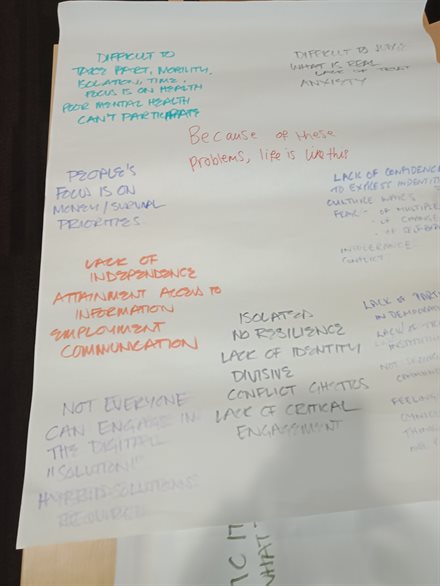 DIFFICULT TO
TAKE PART, MOBILITY,
ISOLATION, TIME.
FOCUS IS ON HEALTH
POOR MENTAL HEALTH
CAN'T PARTICIPATE
DIFFICULT TO
WHAT IS REAL
LACK OF TRUST
ANXIETY
Because of these
problems, life is like this
PEOPLE'S
FOCUS IS ON
MONEY/SURVIVAL
PRIORITIES.
LACK OF CONFIDENCE
TO EXPRESS INDENTITY
CULTURE WARS
FEAR - OF MULTIPLE
- OF CHANGE
- OF
INTOLERANCE
CONFLICT
LACK OF
INDEPENDENCE
ATTAINMENT ACCESS TO
INFORMATION
EMPLOYMENT
COMMUNICATION
ISOLATED
NO RESILIENCE
LACK OF IDENTITY
DIVISIVE
CONFLICT GHETTOS
LACK OF CRITICAL
ENGAGEMENT
LACK OF
IN DEMOCRA
LACK OF
INSTITUTION
NOT
FEELING
NOT EVERYONE
CAN ENGAGE IN
THE DIGITAL
"SOLUTION"
HYBRID SOLUTIONS
REQUIRED